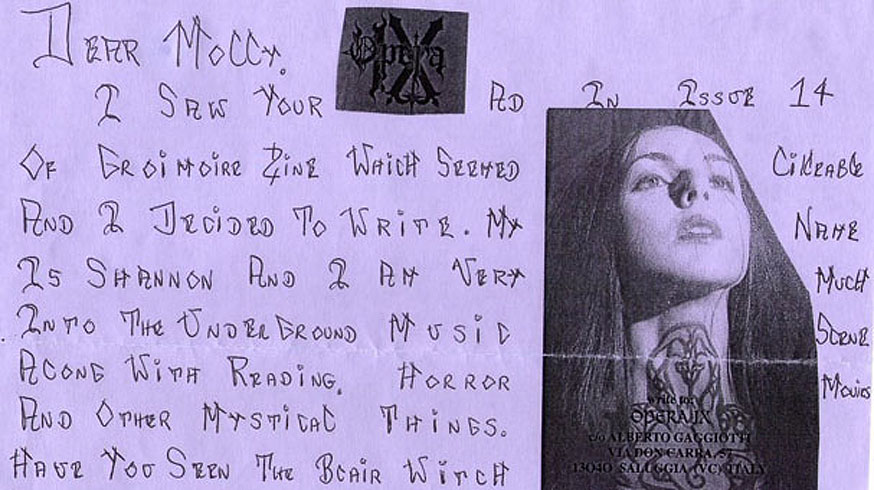 Dear Molly,
I Saw Your Opera IX Ad In Issue 14
Of Groimoire Zine Which Seemed Likeable
And I Decided To Write. My Name
Is Shannon And I Am Very Much
Into The Underground Music Scene
Along With Reading, Horror Movies
And Other Mystical Things.
Have You Seen The Blair Witch
write to:
OPERA IX
c/o ALBERTO GAGGIOTTI
VIA DON CARRA, 57
13040 SALUGGIA (VC) ITALY